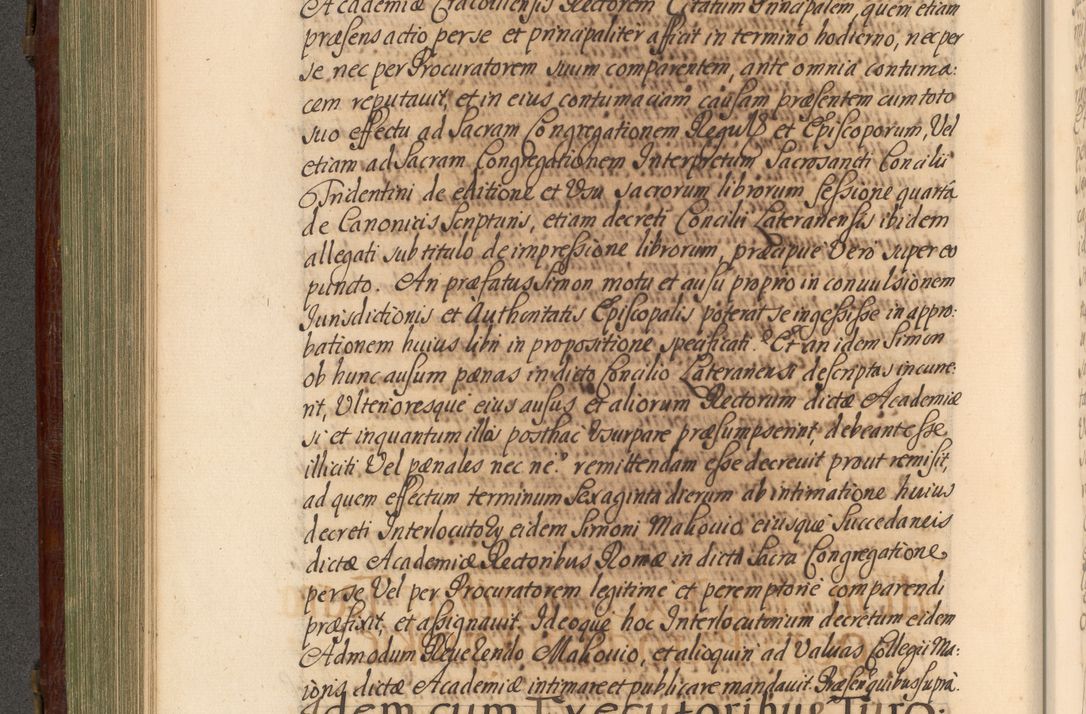 Academiæ Cracoviensis Rectorem Citatum Principalem, quem etiam
præsens actio per se et principaliter afficit in termino hodierno, nec per
se nec per Procuratorem suum comparentem, ante omnia contuma:
cem reputavit, et in eius contumaciam causam præsentem cum toto
suo effectu ad Sacram Congregationem Regul et Episcoporum, Vel
etiam ad Sacram Congregationem Interpretum Sacrosancti Concilii
Tridentini de editione et Vsu sacrorum librorum Sessione quarta
de Canonicis scripturis, etiam decreti Concilii Lateranensis ibidem
allegati sub titulo de impressione librorum, præcipue Vero super eo
puncto. An præfatus Simon motu et ausu proprio in convulsionem
Jurisdictionis et Authoritatis Episcopalis poterat se ingessisse in appro:
bationem huius libri in propositione specificati? Et an idem Simon
ob hunc ausum pænas in dicto Concilio Lateranensi descriptas incurre:
rit, Vlterioresque eius ausus et aliorum Rectorum dictæ Academiæ
si et inquantum illos posthac Vsurpare præsumpserint, debeant esse
illiciti Vel pænales nec ne? remittendam esse decrevit prout remisit,
ad quem effectum terminum Sexaginta dierum ab intimatione huius
decreti Interlocutorÿ eidem Simoni Makovio eiusque Succedaneis
dictæ Academiæ Rectoribus Romæ in dicta Sacra Congregatione
per se Vel per Procuratorem legitime et peremptorie comparendi
præfixit, et assignavit. Ideoque hoc Interlocutorium decretum eidem
Admodum Reverendo Makovio, et alioquin ad Valvas Collegii Ma:
ioris dictæ Academiæ intimare et publicare mandavit. Præsen. quibus supra.
Idem cum Executoribus Turo: